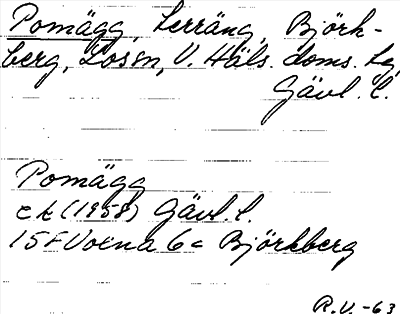 Pomägg, terräng, Björk-
berg, Los sn, V. Häls. doms. lg,
Gävl. l.
Pomägg
ek (1958) Gävl. l.
15F Voxna 6c Björkberg
R.V. -63